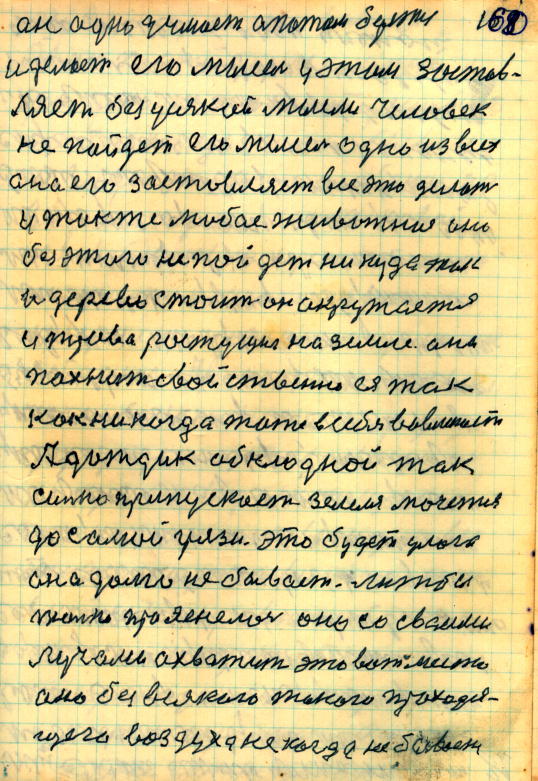 он одно думает а потом берет 169
и делает его мысля и этом застав-
ляет без усякой мысли человек
не пойдет его мысля одно из всех
она его заставляет все это делат
и также любое животное оно
без этого не пойдет никуда так
и дерево стоит он окружается
и трова ростущия на земле. она
пахнит свойственно ея так
как никогда тоже в себя
А дождик обкладной так
сильно припускает земля мочется
до самой грязи. это будет улога
она долго не бывает. лишбы
только прояенелоч оно со своими
лучами охватит это вот место
оно без всякого такого проходя-
щего воздуха некогда не бывает